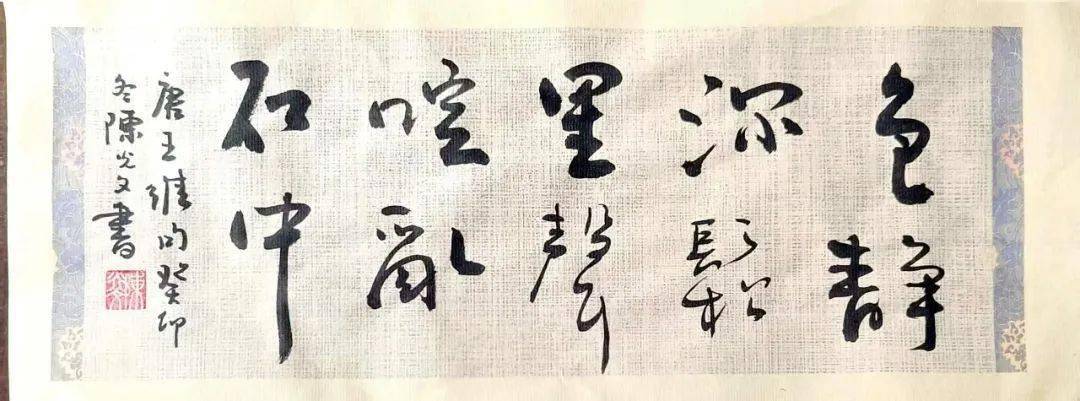 色静
深鬆
里聲
喧亂
石中
唐王維句癸卯
冬陳光文書